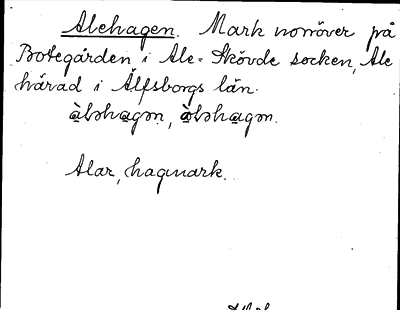 Alehagen. Mark norröver på
Botegården i Ale-Skövde socken, Ale
härad i Älfsborgs län.
Alar, hagmark.